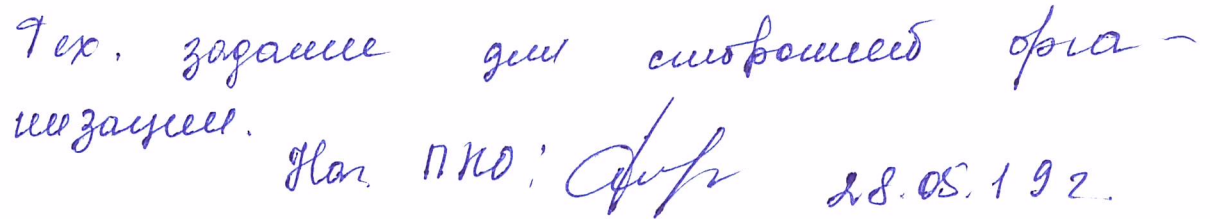 Тех. задание для сторонней орга-
низации.
Нач. ПКО: 28.05.19г.